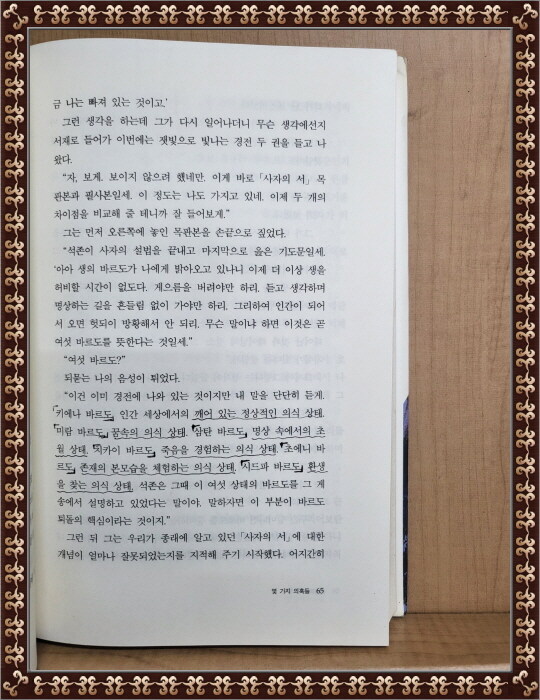 금 나는 빠져 있는 것이고.'
그런 생각을 하는데 그가 다시 일어나더니 무슨 생각에선지
서재로 들어가 이번에는 잿빛으로 빛나는 경전 두 권을 들고 나
왔다.
"자, 보게. 보이지 않으려 했네만. 이게 바로 「사자의 서」 목
판본과 필사본일세. 이 정도는 나도 가지고 있네. 이제 두 개의
차이점을 비교해 줄 테니까 잘 들어보게."
그는 먼저 오른쪽에 놓인 목판본을 손끝으로 짚었다.
"석존이 사자의 설법을 끝내고 마지막으로 읊은 기도문일세.
'아아 생의 바르도가 나에게 밝아오고 있나니 이제 더 이상 생을
허비할 시간이 없도다. 게으름을 버려야만 하리. 듣고 생각하며
명상하는 길을 흔들림 없이 가야만 하리. 그리하여 인간이 되어
서 오면 헛되이 방황해서 안 되리. 무슨 말이냐 하면 이것은 곧
여섯 바르도를 뜻한다는 것일세."
"여섯 바르도?"
되묻는 나의 음성이 튀었다.
"이건 이미 경전에 나와 있는 것이지만 내 말을 단단히 듣게.
키에나 바르도, 인간 세상에서의 깨어 있는 정상적인 의식 상태.
미람 바르도, 꿈속의 의식 상태. 삼탄 바르도, 명상 속에서의 초
월 상태. 치카이 바르도, 죽음을 경험하는 의식 상태. 초에니 바
르도, 존재의 본모습을 체험하는 의식 상태. 시드파 바르도, 환생
을 찾는 의식 상태. 석존은 그때 이 여섯 상태의 바르도를 그 게
송에서 설명하고 있었다는 말이야. 말하자면 이 부분이 바르도
퇴돌의 핵심이라는 것이지."
그런 뒤 그는 우리가 종래에 알고 있던 「사자의 서」에 대한
개념이 얼마나 잘못되었는지를 지적해 주기 시작했다. 어지간히
몇 가지 의혹들 65